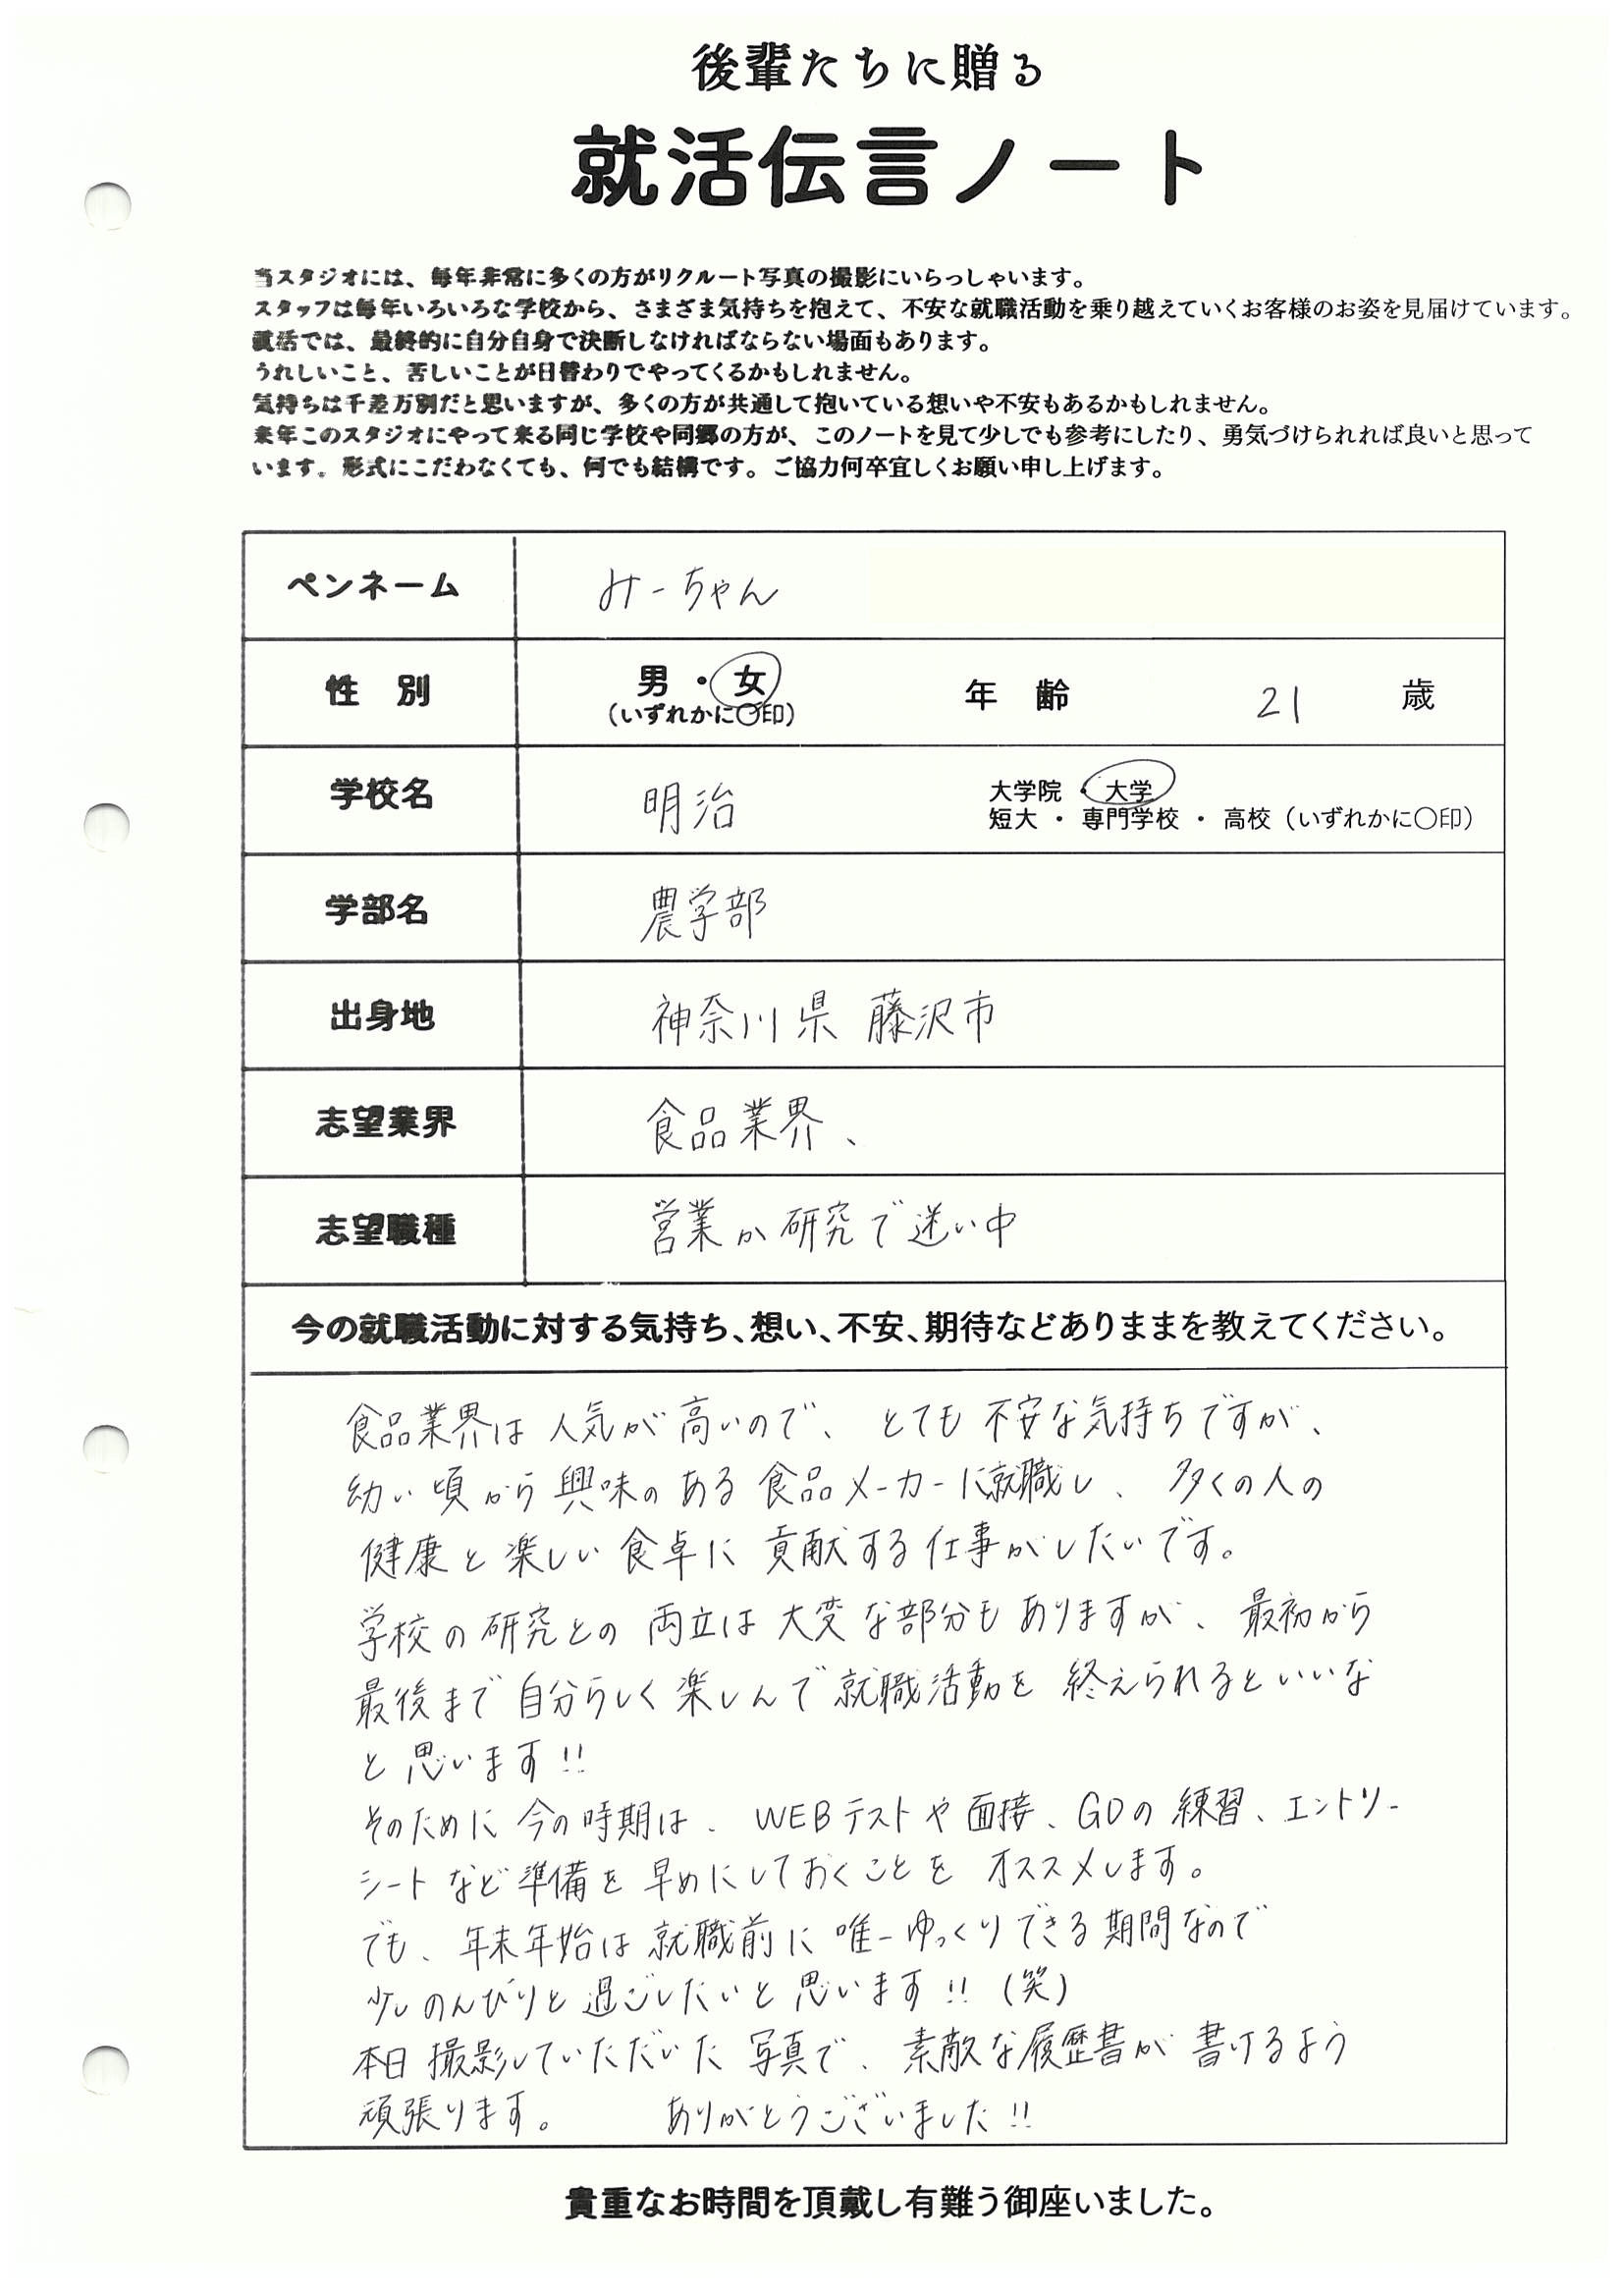 後輩たちに贈る
就活伝言ノート
当スタジオには、毎年非常に多くの方がリクルート写真の撮影にいらっしゃいます。
スタッフは毎年いろいろな学校から、さまざま気持ちを抱えて、不安な就職活動を乗り越えていくお客様のお姿を見届けています。
就活では、最終的に自分自身で決断しなければならない場面もあります。
うれしいこと、苦しいことが日替わりでやってくるかもしれません。
気持ちは千差万別だと思いますが、多くの方が共通して抱いている想いや不安もあるかもしれません。
来年このスタジオにやって来る同じ学校や同郷の方が、このノートを見て少しでも参考にしたり、勇気づけられれば良いと思って
います。形式にこだわなくても、何でも結構です。ご協力何卒宜しくお願い申し上げます。
ペンネーム みーちゃん
性 別 男・女 年 齢 21 歳
(いずれかに〇印)
学校名 明治 大学院・大学
短大・専門学校・高校(いずれかに〇印)
学部名 農学部
出身地 神奈川県 藤沢市
志望業界 食品業界、
志望職種 営業か研究で迷い中
今の就職活動に対する気持ち、想い、不安、期待などありままを教えてください。
食品業界は人気が高いので、とても不安な気持ちですが、
幼い頃から興味のある食品メーカーに就職し、多くの人の
健康と楽しい食卓に貢献する仕事がしたいです。
学校の研究との両立は大変な部分もありますが、最初から
最後まで自分らしく楽しんで就職活動を終えられるといいな
と思います!!
そのために今の時期は、WEBテストや面接、GDの練習、エントリー
シートなど準備を早めにしておくことをオススメします。
でも、年末年始は就職前に唯一ゆっくりできる期間なので
少しのんびりと過ごしたいと思います!!(笑)
本日撮影していただいた写真で、素敵な履歴書が書けるよう
頑張ります。 ありがとうございました!!
貴重なお時間を頂戴し有難う御座いました。